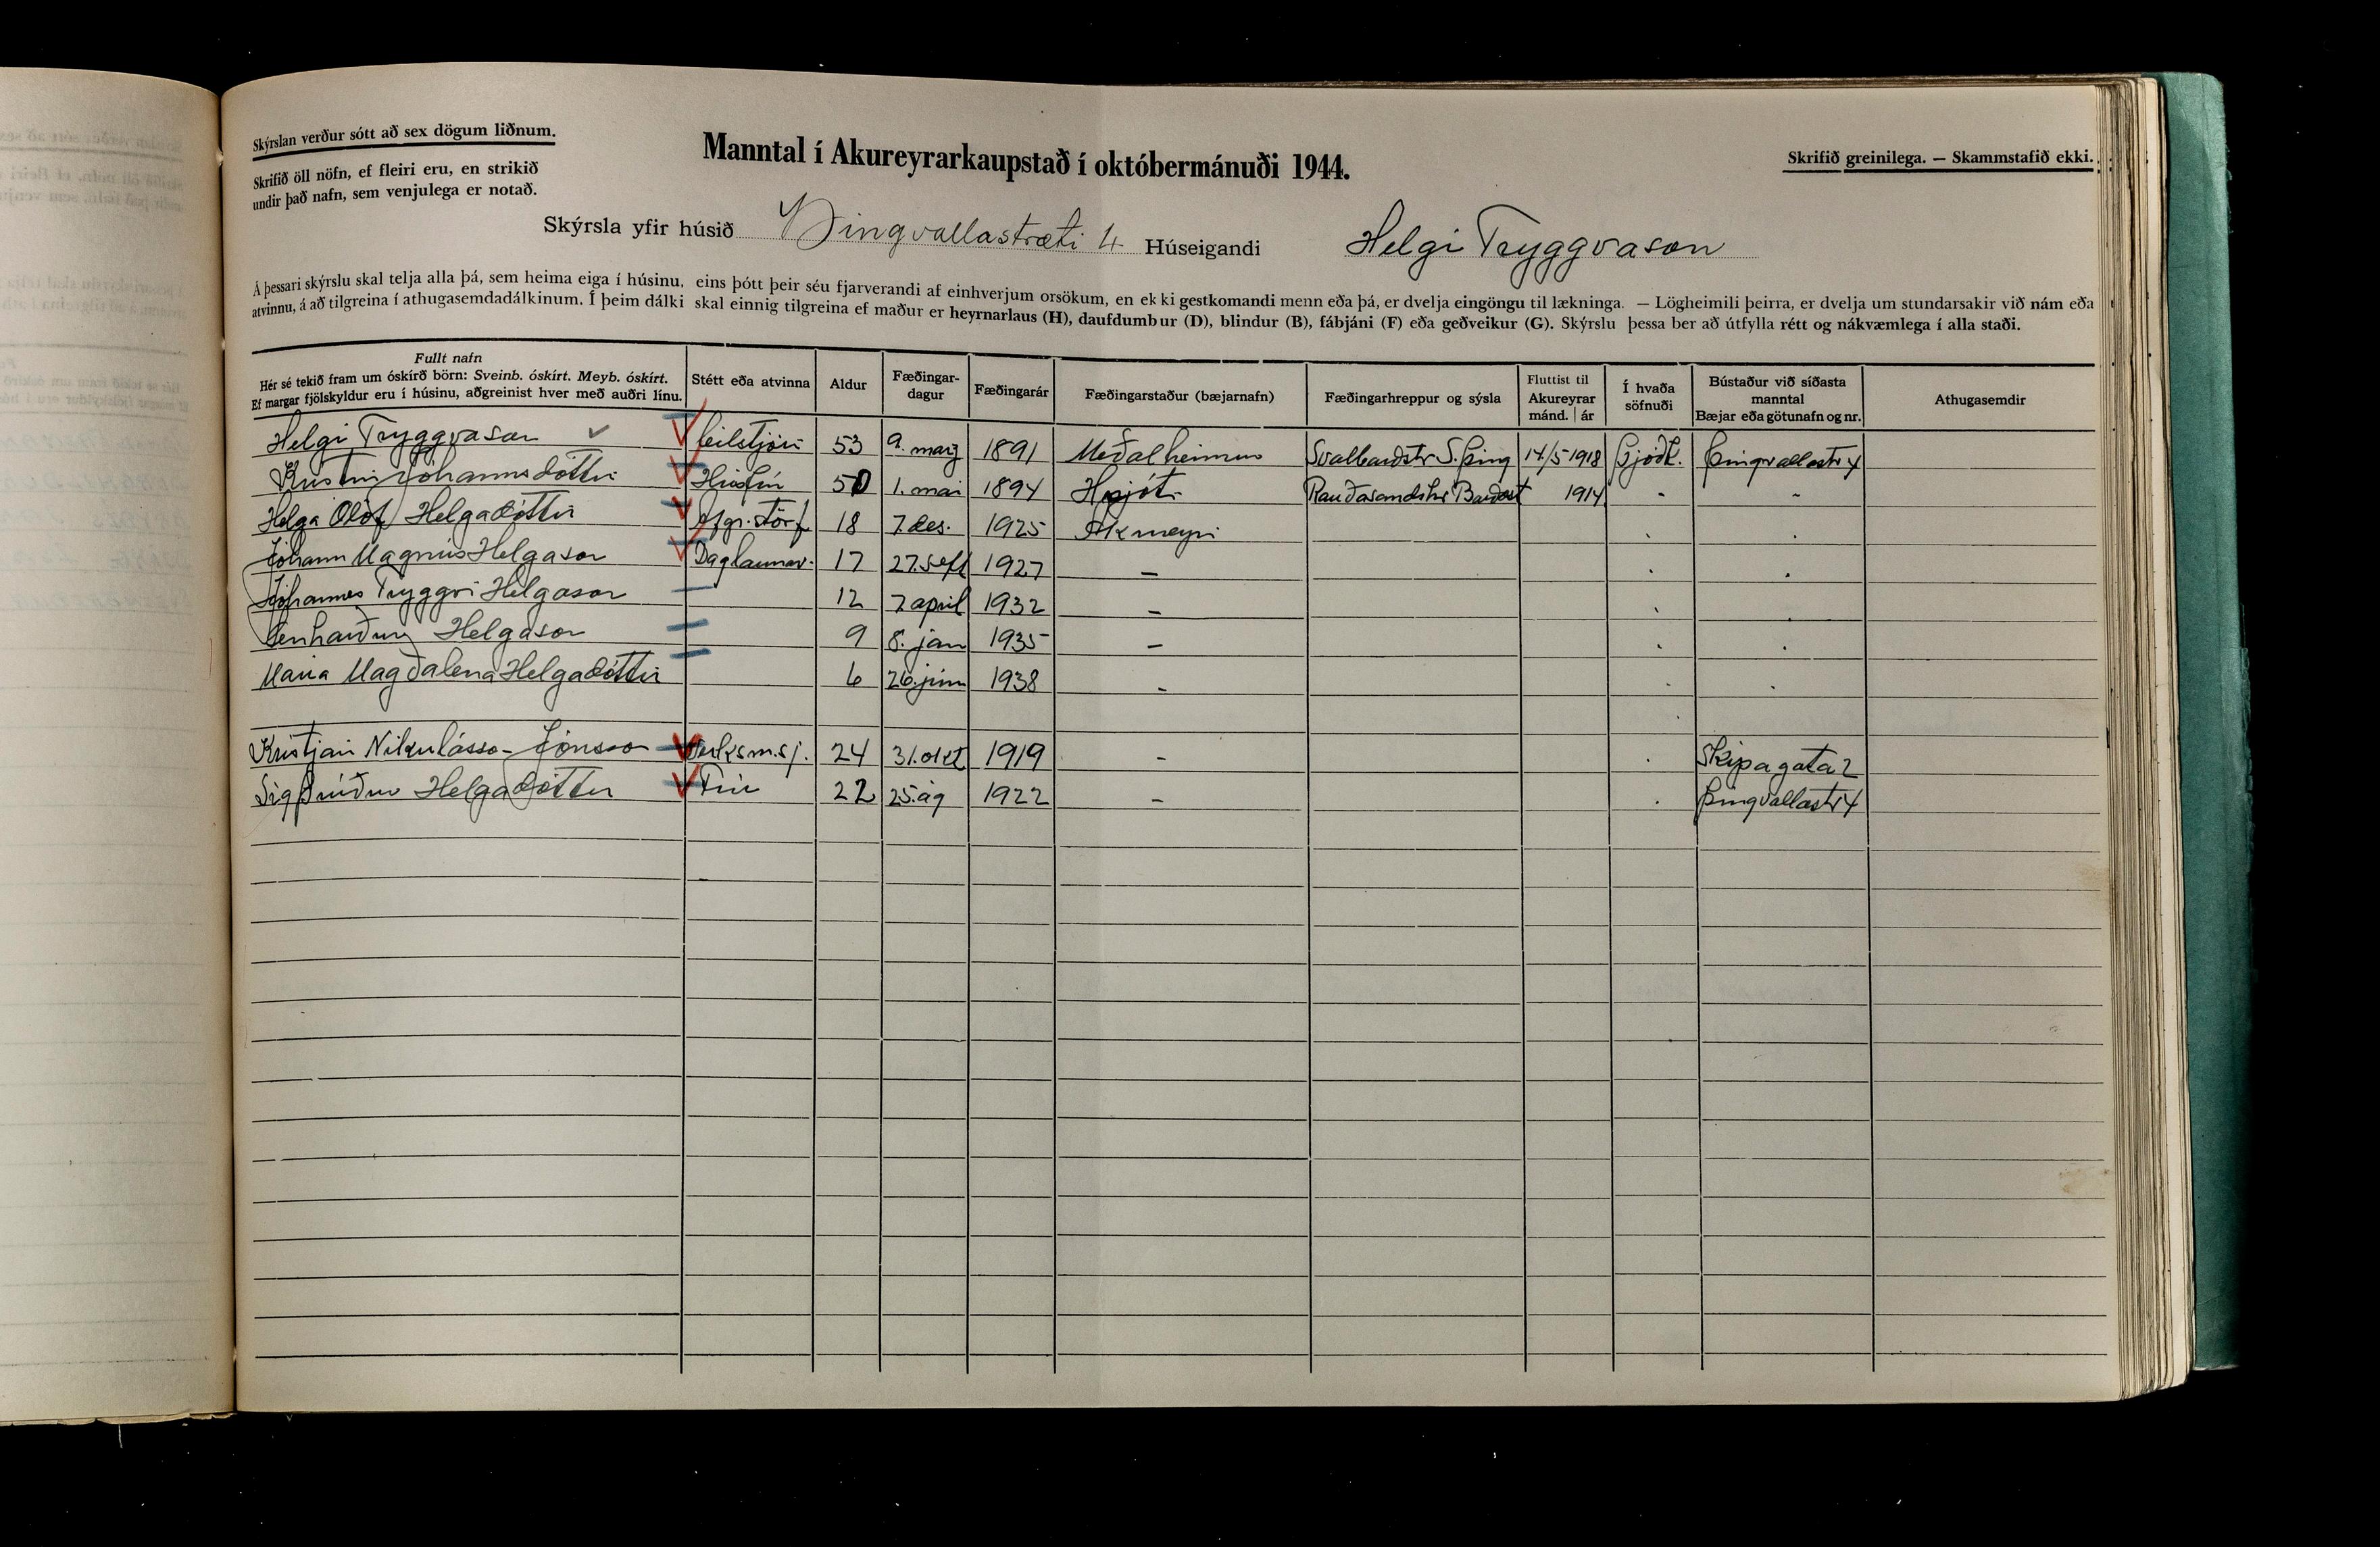 Skýrslan verður sótt að sex dögum liðnum.
Skrifið öll nöfn, ef fleiri eru, en strikið
undir það nafn, sem venjulega er notað.
Manntal í Akureyrarkaupstað í októbermánuði 1944.
Skrifið greinilega. — Skammstafið ekki.
Skýrsla yfir húsið Þingvallastræti 4 Húseigandi Helgi Tryggvason
Á þessari skýrslu skal telja alla þá, sem heima eiga í húsinu, eins þótt þeir séu fjarverandi af einhverjum orsökum, en ekki gestkomandi menn eða þá, er dvelja eingöngu til lækninga. — Lögheimili þeirra, er dvelja um stundarsakir við nám eða
atvinnu, á að tilgreina í athugasemdadálkinum. Í þeim dálki skal einnig tilgreina ef maður er heyrnarlaus (H), daufdumbur (D), blindur (B), fábjáni (F) eða geðveikur (G). Skýrslu þessa ber að útfylla rétt og nákvæmlega í alla staði.
Fullt nafn
Hér sé tekið fram um óskírð börn: Sveinb. óskírt. Meyb. óskírt.
Ef margar fjölskyldur eru í húsinu, aðgreinist hver með auðri línu.
Stétt eða atvinna
Aldur
Fæðingar-
dagur
Fæðingarár
Fæðingarstaður (bæjarnafn)
Fæðingarhreppur og sýsla
Fluttist til
Akureyrar
mánd. | ár
Í hvaða
söfnuði
Bústaður við síðasta
manntal
Bæjar eða götunafn og nr.
Athugasemdir
Helgi Tryggvason bílstjóri 53 9. marz 1891 Meðalheimur Svalbarðstr S. Þing 14/5 1918 Þjóðk. Þingvallastr 4
Kristín Jóhannsdóttir Húsfrú 50 1. mai 1894 Rauðasandshr Barðast 1914 - -
Helga Ólöf Helgadóttir 18 7. des. 1925 Akureyri
Jóhann Magnús Helgason Daglaunav. 17 27. sept 1927 —
Jóhannes Tryggvi Helgason 12 7 apríl 1932 -
Lenharður Helgason 9 8. jan 1935 —
María Magdalena Helgadóttir 6 26. júní 1938 -
Kristján Nikulásso- Jónsson verksm.sj. 24 31. okt 1919 - Skipagata 2
Sigþrúður Helgadóttir Frú 22 25. ág 1922 — Þingvallastr 4